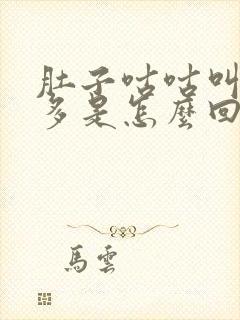 肚子咕咕叫
多是怎麼回
馬雲